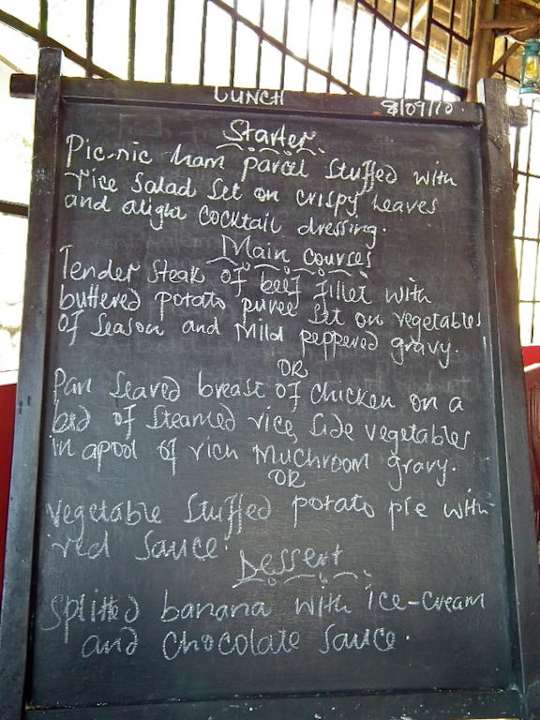 LUNCH 8/09/10
Starter
Pic-nic ham parcel stuffed with
rice salad set on crispy leaves
and alight cocktail dressing.
Main Courses
Tender steak of beef fillet with
buttered potato puree set on vegetables
of season and mild peppered gravy.
OR
Pan seaved breast of chicken on a
bed of steamed rice, side vegetables
in apool of rich muchroom gravy.
OR
vegetable stuffed potato pie with
red sauce.
Dessert
splitted banana with ice-cream
and chocolate sauce.